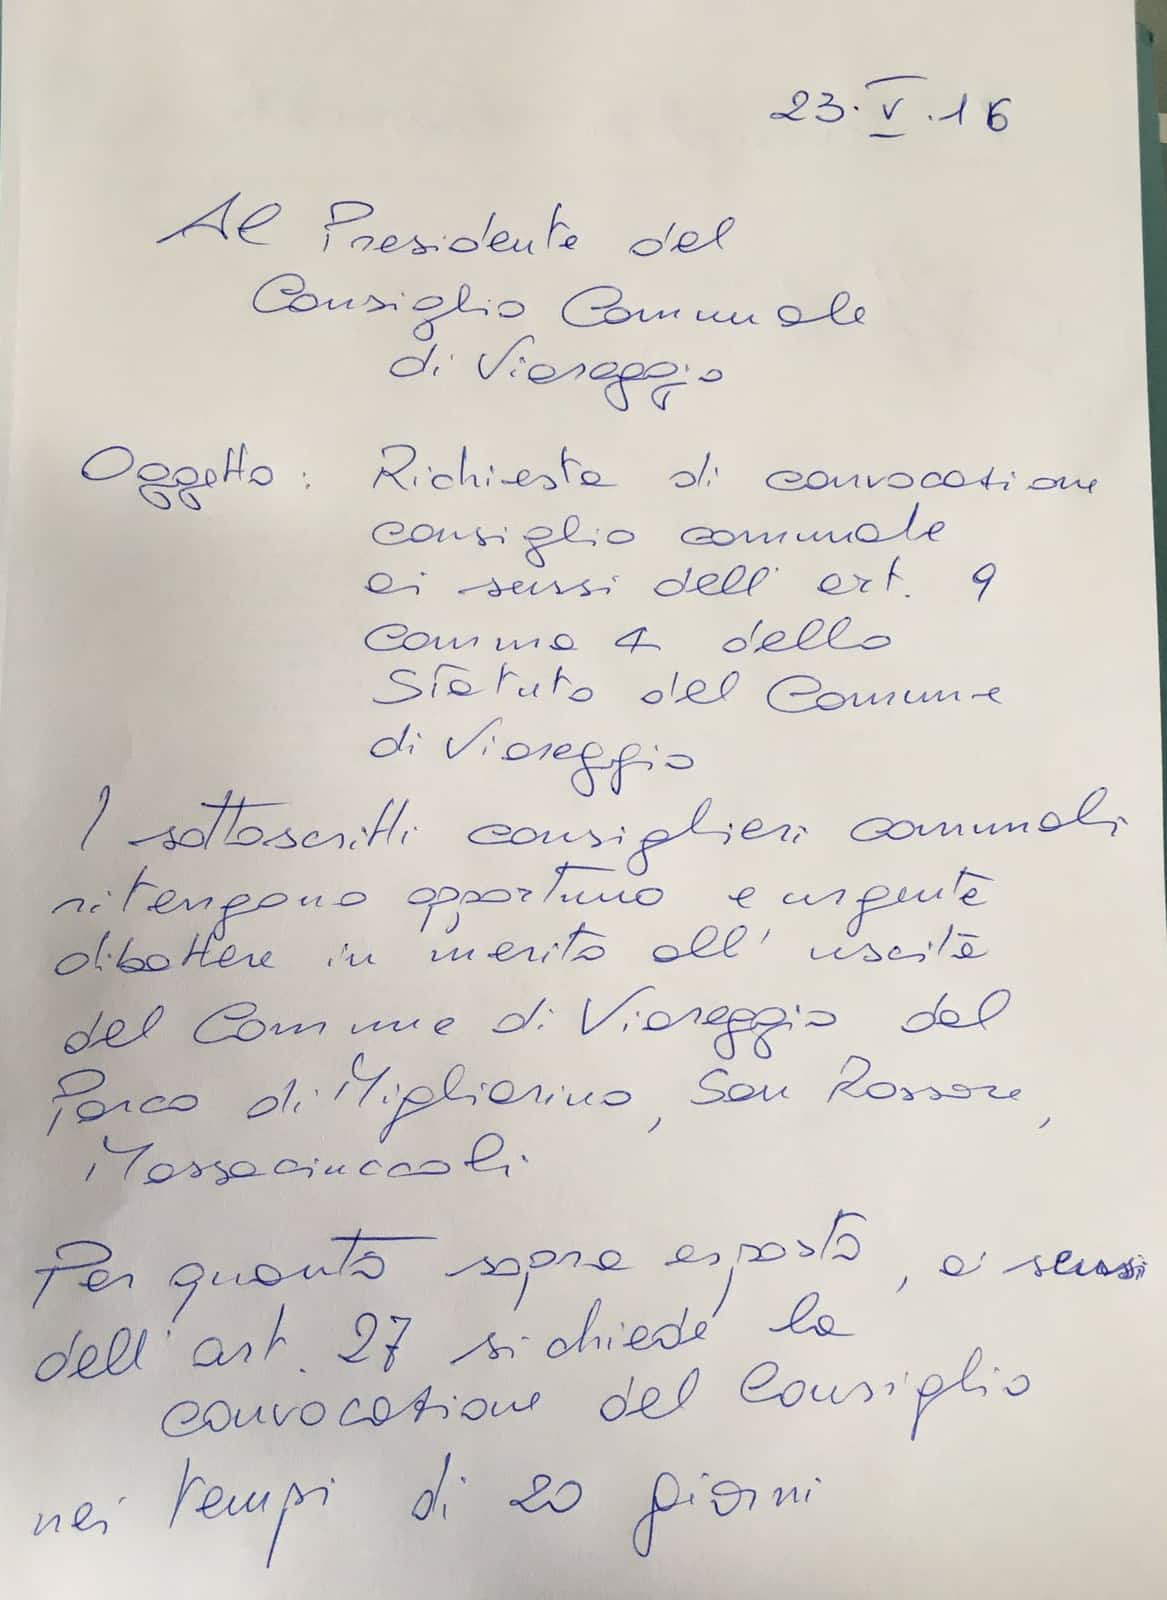 23.V.16
Al Presidente del
Consiglio Comunale
di Viareggio
Oggetto: Richiesta di convocazione
consiglio comunale
ai sensi dell'art. 9
comma 4 dello
Statuto del Comune
di Viareggio
I sottoscritti consiglieri comunali
ritengono opportuno e urgente
dibattere in merito all'uscita
del Comune di Viareggio dal
Parco di Migliarino, San Rossore,
Massaciuccoli.
Per quanto sopra esposto, ai sensi
dell'art. 27 si chiede la
convocazione del Consiglio
nei tempi di 20 giorni